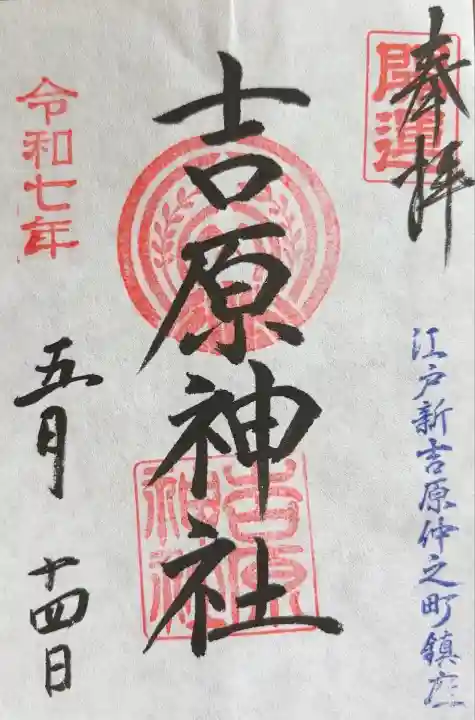 奉拝
開運
江戸新吉原仲之町鎮座
吉原神社
吉原
神社
令和七年
五月
十四日